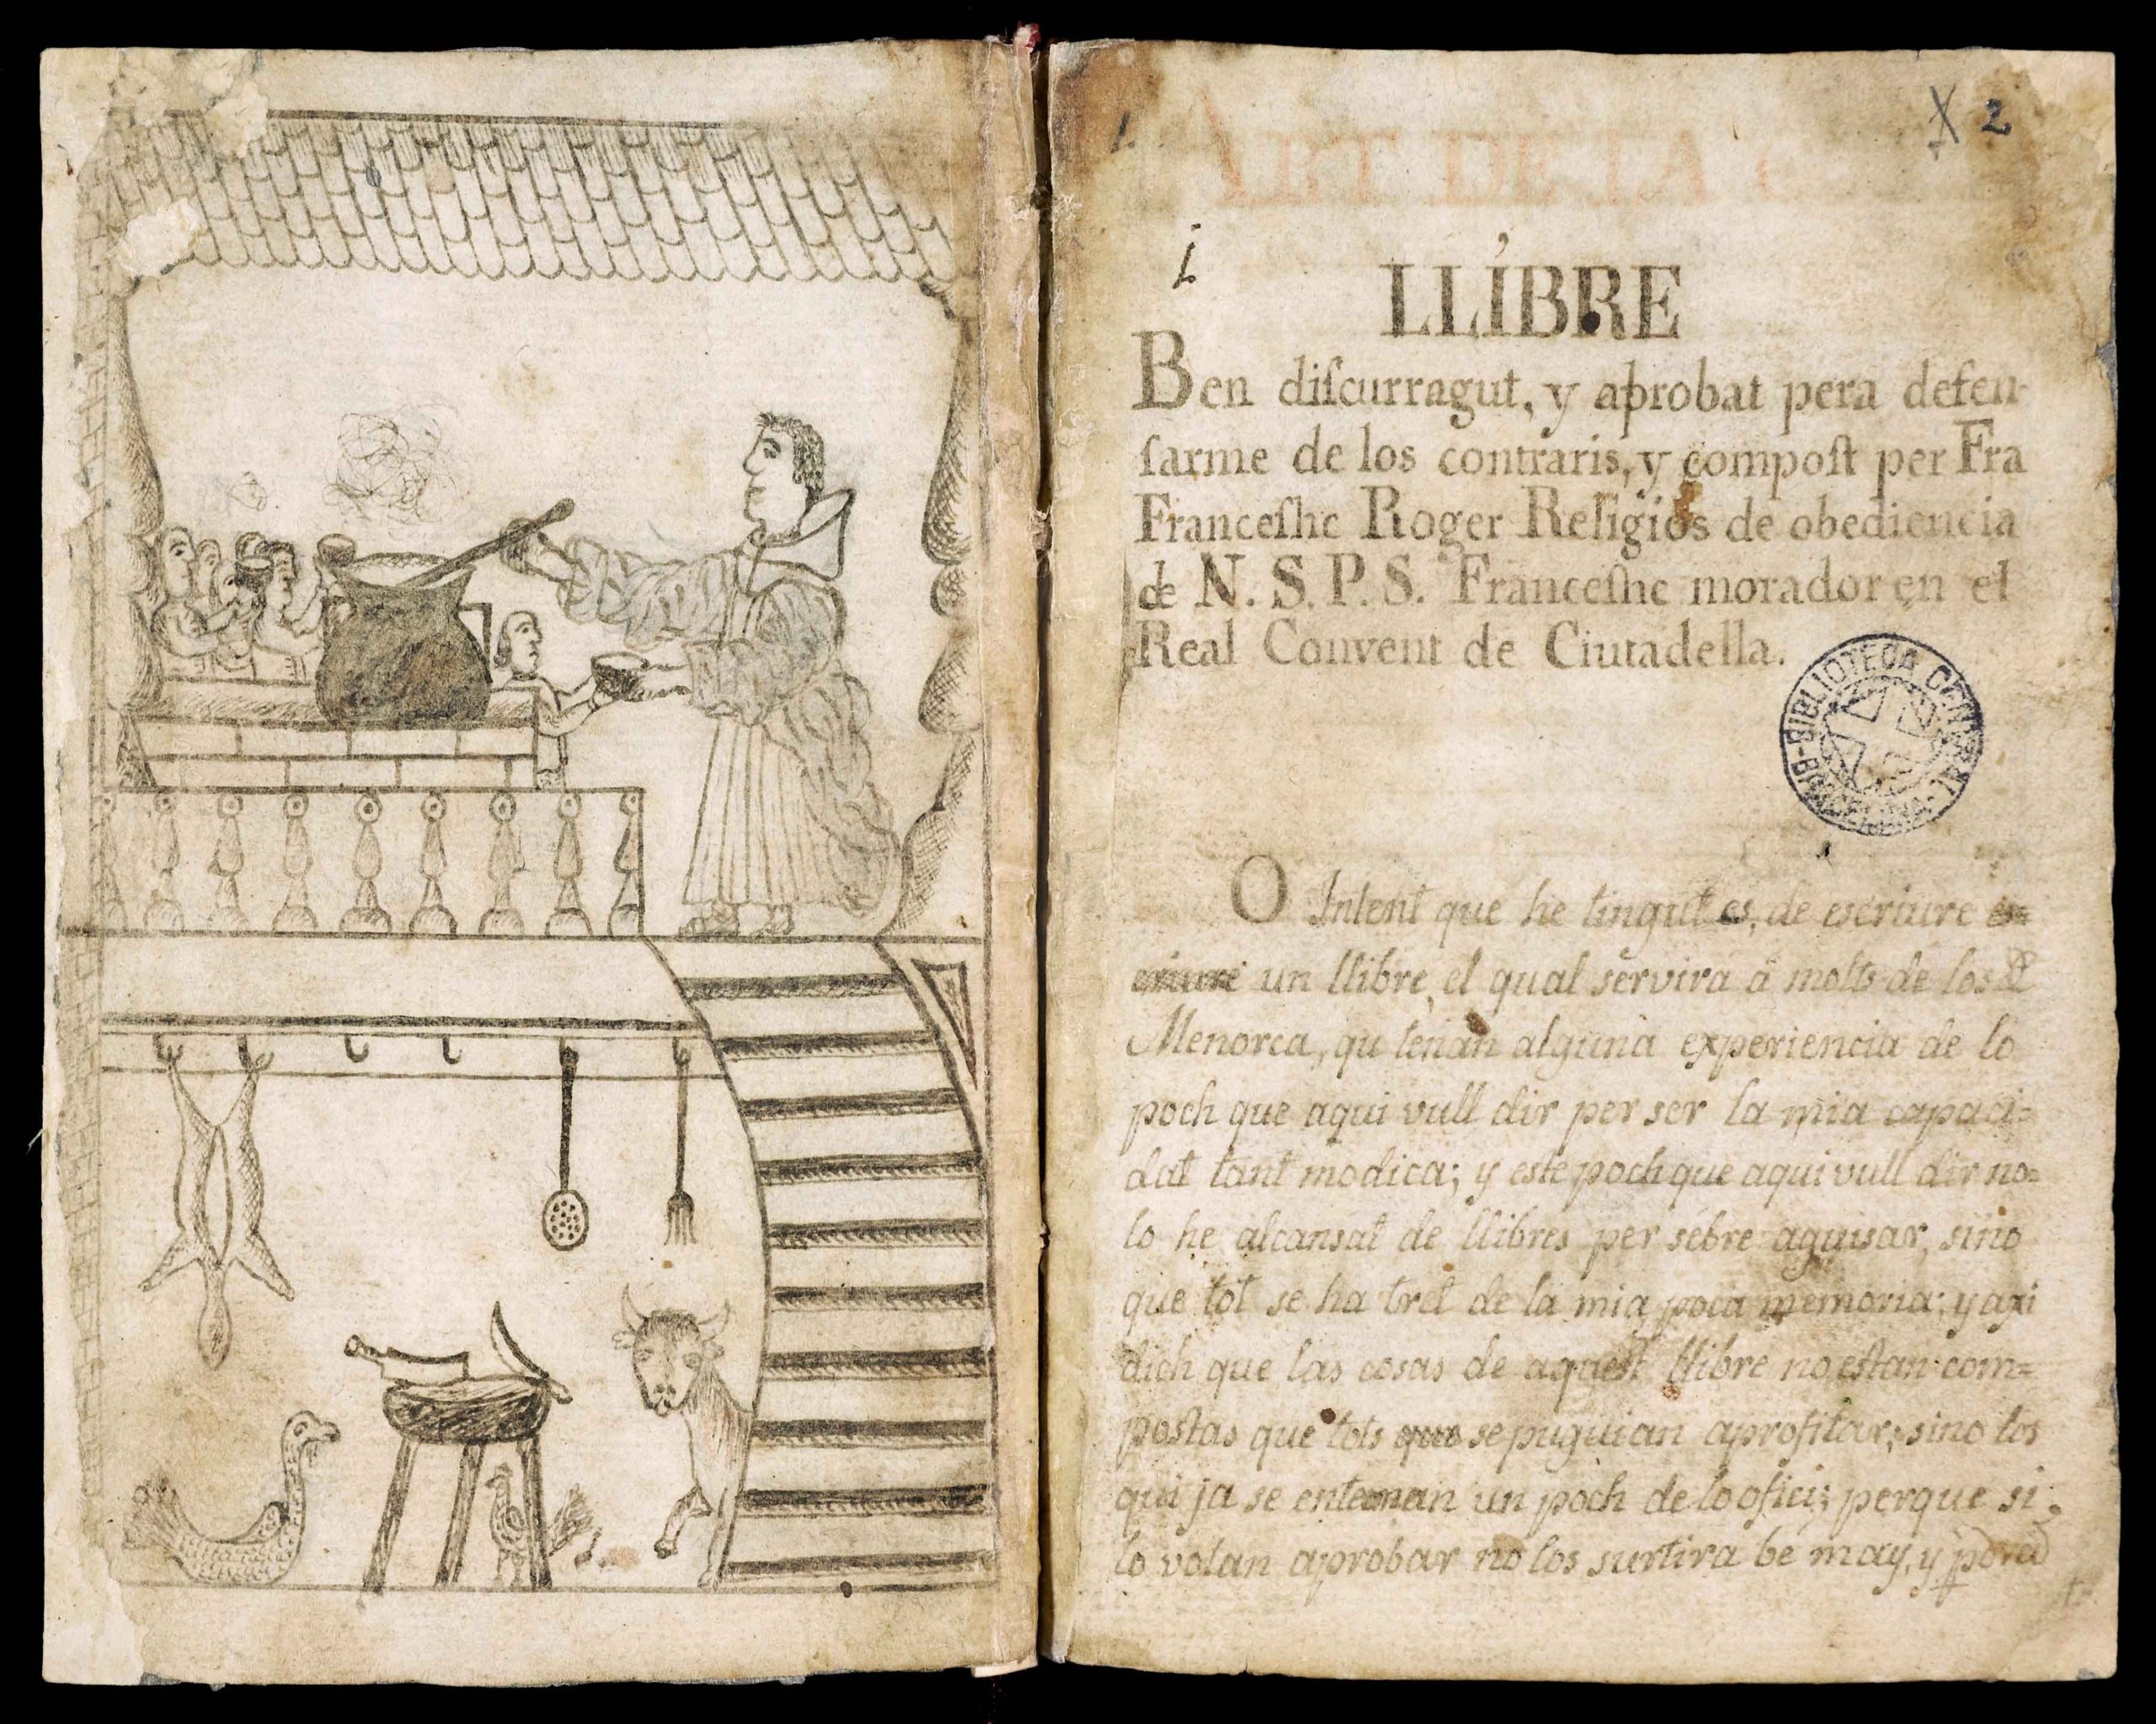 X 2
ART DE LA
1
LLIBRE
Ben diſcurragut, y aprobat pera defen-
ſarme de los contraris, y compoſt per Fra
Franceſhc Roger Religiós de obediencia
de N. S. P. S. Franceſhc morador en el
Real Convent de Ciutadella.
BIBLIOTECA CENTRAL
O Intent que he tingut es, de escriure es=
criure un llibre, el qual servirá á molts de los
Menorca, qu tenan alguna experiencia de lo
poch que aqui vull dir per ser la mia capaci=
dat tant modica; y este poch que aqui vull dir no=
lo he alcansat de llibres per sebre aguisar, sino
que tot se ha tret de la mia poca memoria; y axi
dich que las cosas de aquest llibre no estan com=
postas que tots que se puguian aprofitar; sino los
qui ja se entenan un poch de lo ofici; perque si
lo volan aprobar no los surtira bé may, y